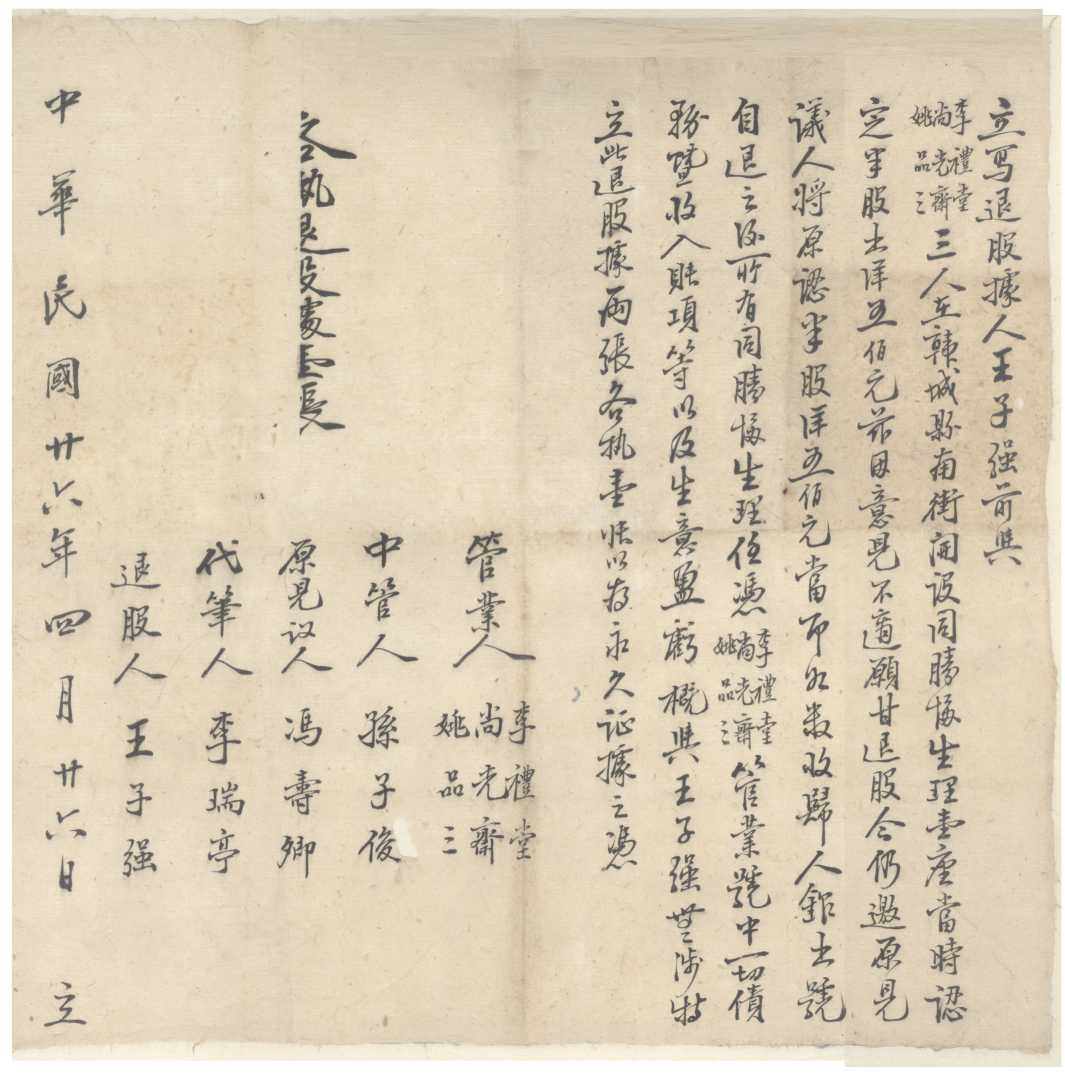 立寫退股據人王子強前與
李禮堂尚光齋姚品三三人在韓城縣南街開設同勝悔生理壹座當時認
定半股出洋五佰元茲因意見不適願甘退股今仍邀原見
議人將原認半股洋五佰元當面如数收歸人銀出號
自退之後所有同勝悔生理任憑李禮堂尚光齋姚品三管業號中一切債
務暨收入賬項等以及生意盈虧概與王子強無涉特
立此退股據兩張各执壹張以存永久証據之憑
各执退股據壹張
管業人 李禮堂 尚光齋 姚品三
中管人 孫子俊
原見议人 馮壽卿
代筆人 李瑞亭
退股人 王子强
中華民國廿六年四月廿六日 立